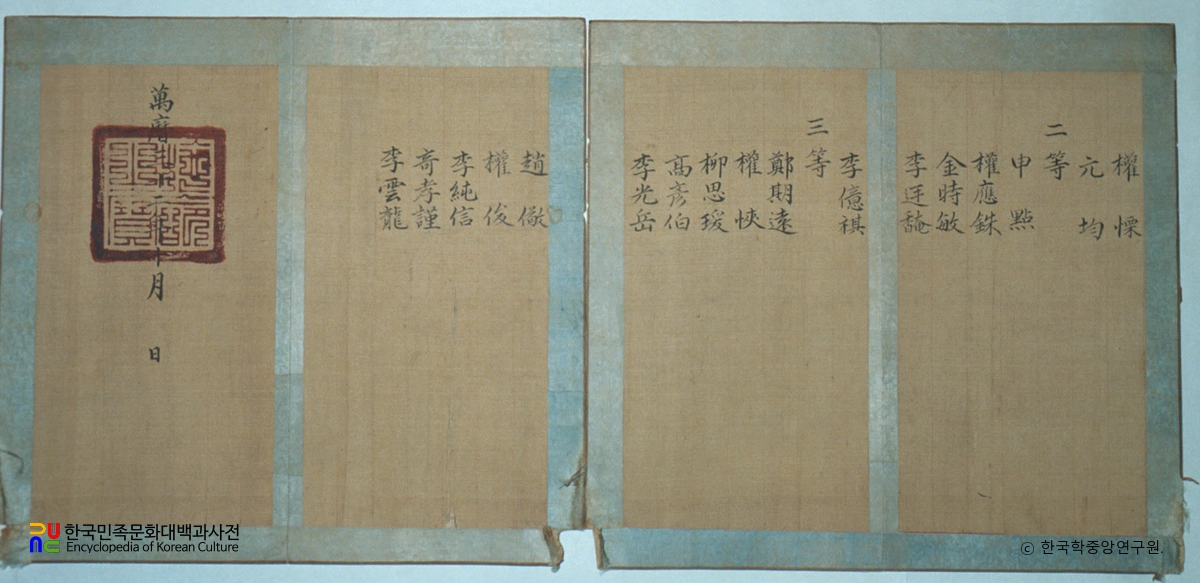 權慄
元均
二等
申點
權應銖
金時敏
李廷馣
李億祺
三等
鄭期遠
權悏
柳思瑗
高彦伯
李光岳
趙儆
權俊
李純信
奇孝謹
李雲龍
萬曆三十二年十月 日
한국민족문화대백과사전
Encyclopedia of Korean Culture
© 한국학중앙연구원.